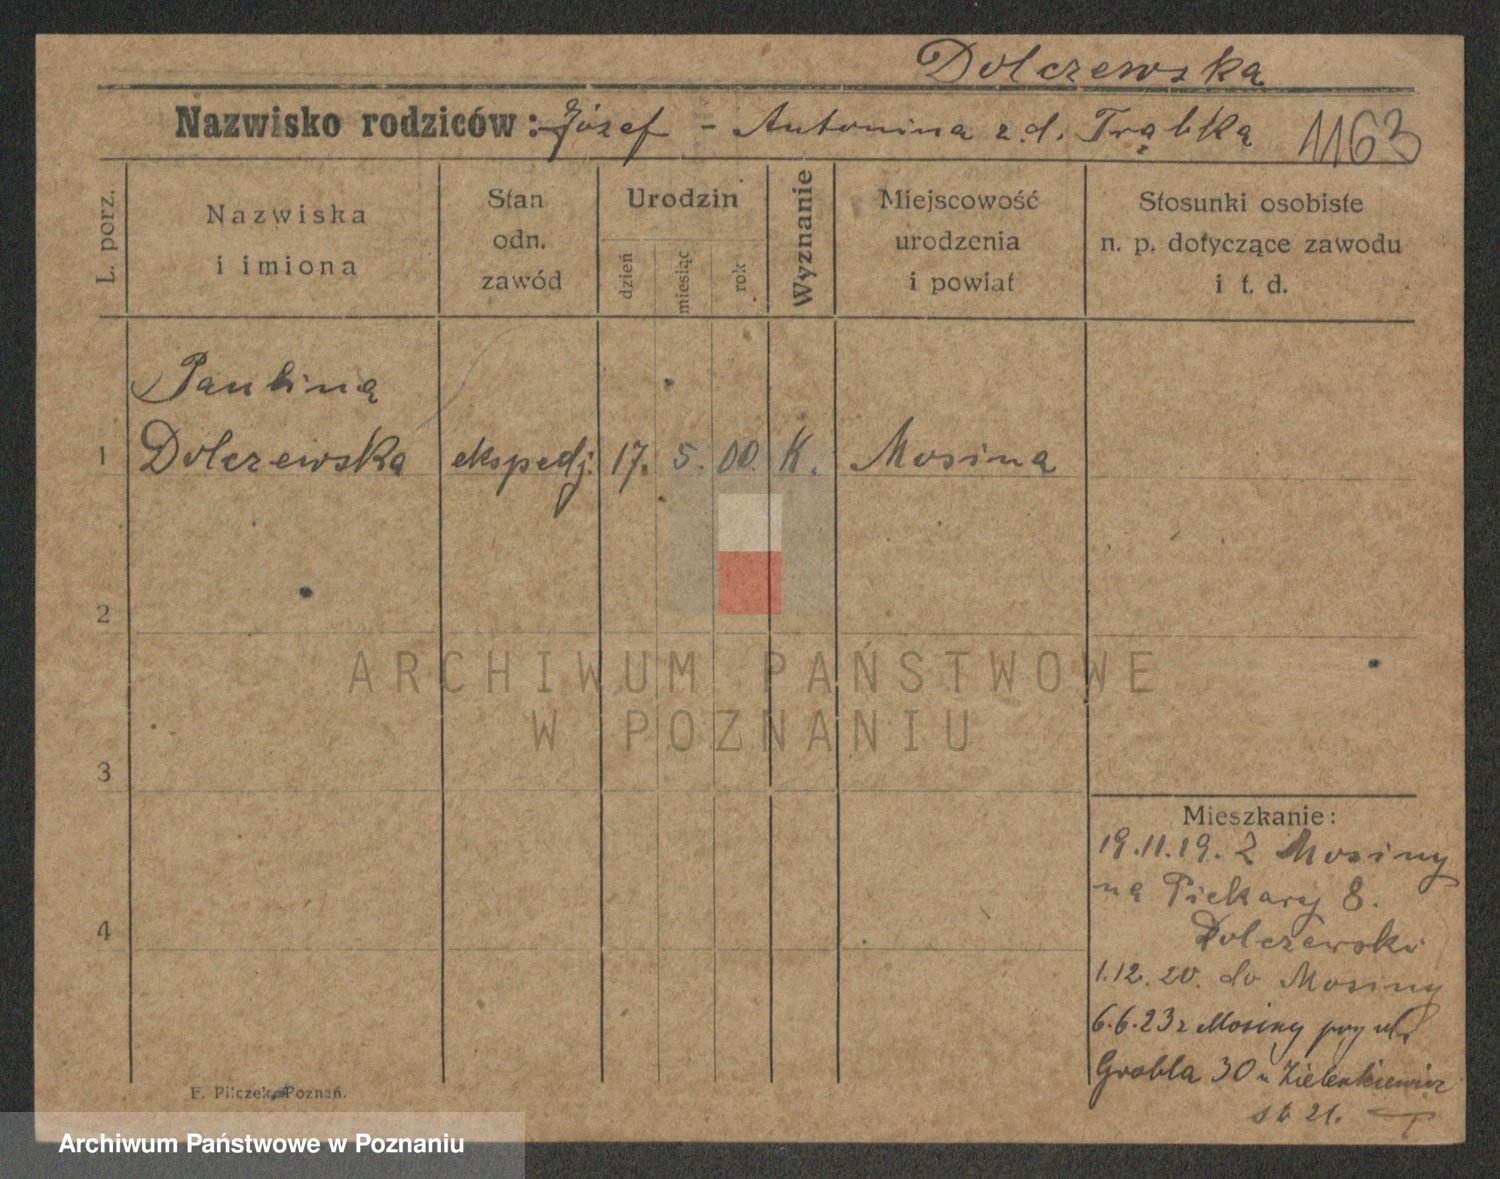 Dolczewska
Nazwisko rodziców: Józef - Antonina z d. Trąbka 1163
L. porz.
Nazwiska
i imiona
Stan
odn.
zawód
Urodzin
dzień
miesiąc
rok
Wyznanie
Miejscowość
urodzenia
i powiat
Stosunki osobiste
n. p. dotyczące zawodu
i t. d.
Paulina
1 Dolczewska ekspedj. 17. 5. 00. K. Mosina
2
3
4
ARCHIWUM PAŃSTWOWE
W POZNANIU
Mieszkanie:
19.11.19. Z Mosiny
na Piekary 8.
Dolczewski
1.12.20. do Mosiny
6.6.23 z Mosiny przy ul.
Grobla 30 u Zielenkiewicz
st. 21.
F. Pilczek, Poznań.
Archiwum Państwowe w Poznaniu